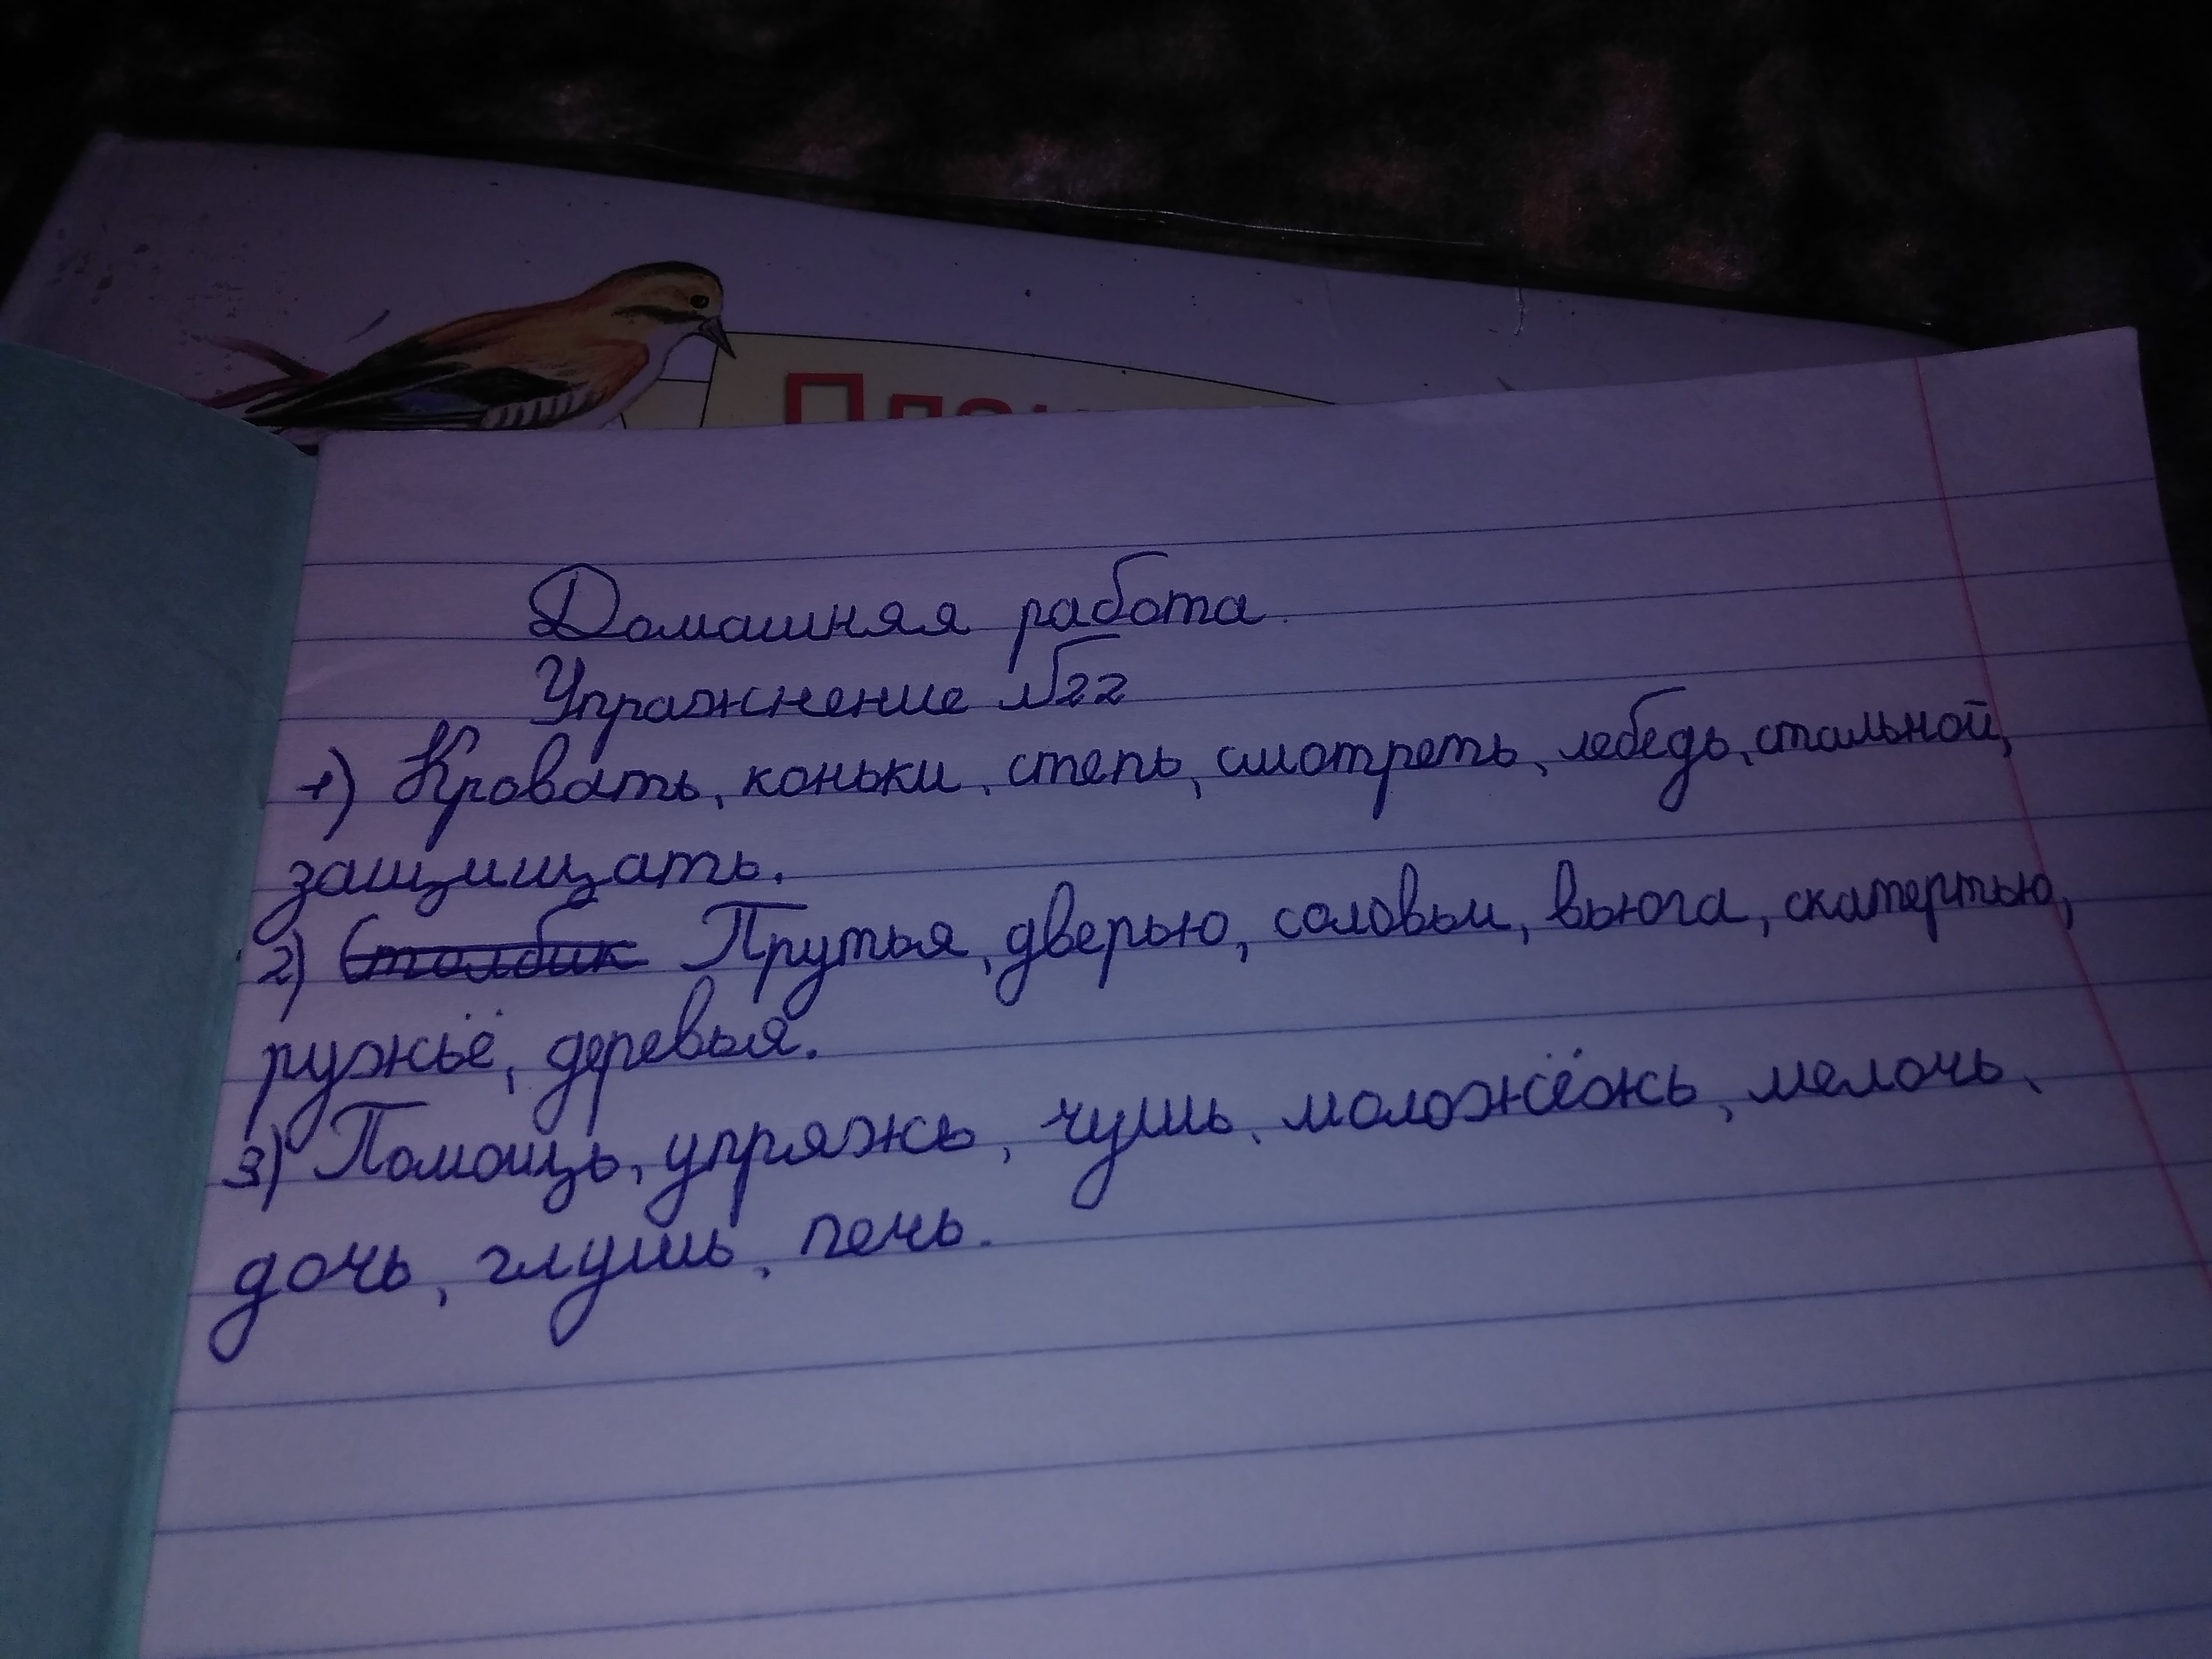 План
Домашняя работа.
Упражнение №22
1) Кровать, коньки, степь, смотреть, лебедь, стальной,
защищать.
2) Столбик Прутья, дверью, соловьи, вьюга, скатертью,
ружьё, деревья.
3) Помощь, упряжь, чушь, моложёжь, мелочь,
дочь, глушь, печь.